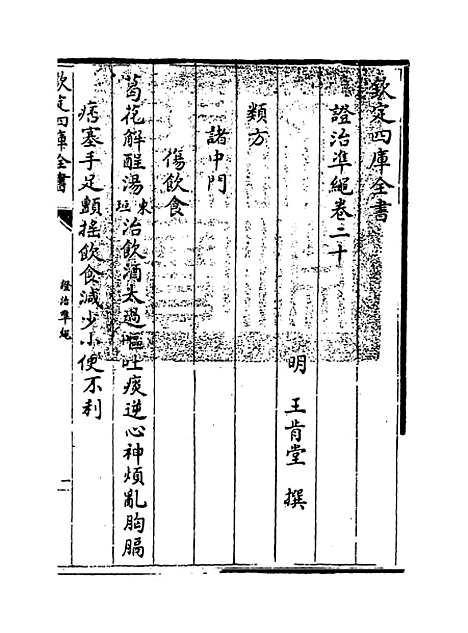 欽定四庫全書
證治準繩卷二十
明 王肯堂 撰
類方
諸中門
傷飲食
葛花解酲湯東垣治飲酒太過嘔吐痰逆心神煩亂胸膈
痞塞手足顫搖飲食減少小便不利
欽定四庫全書
證治準繩